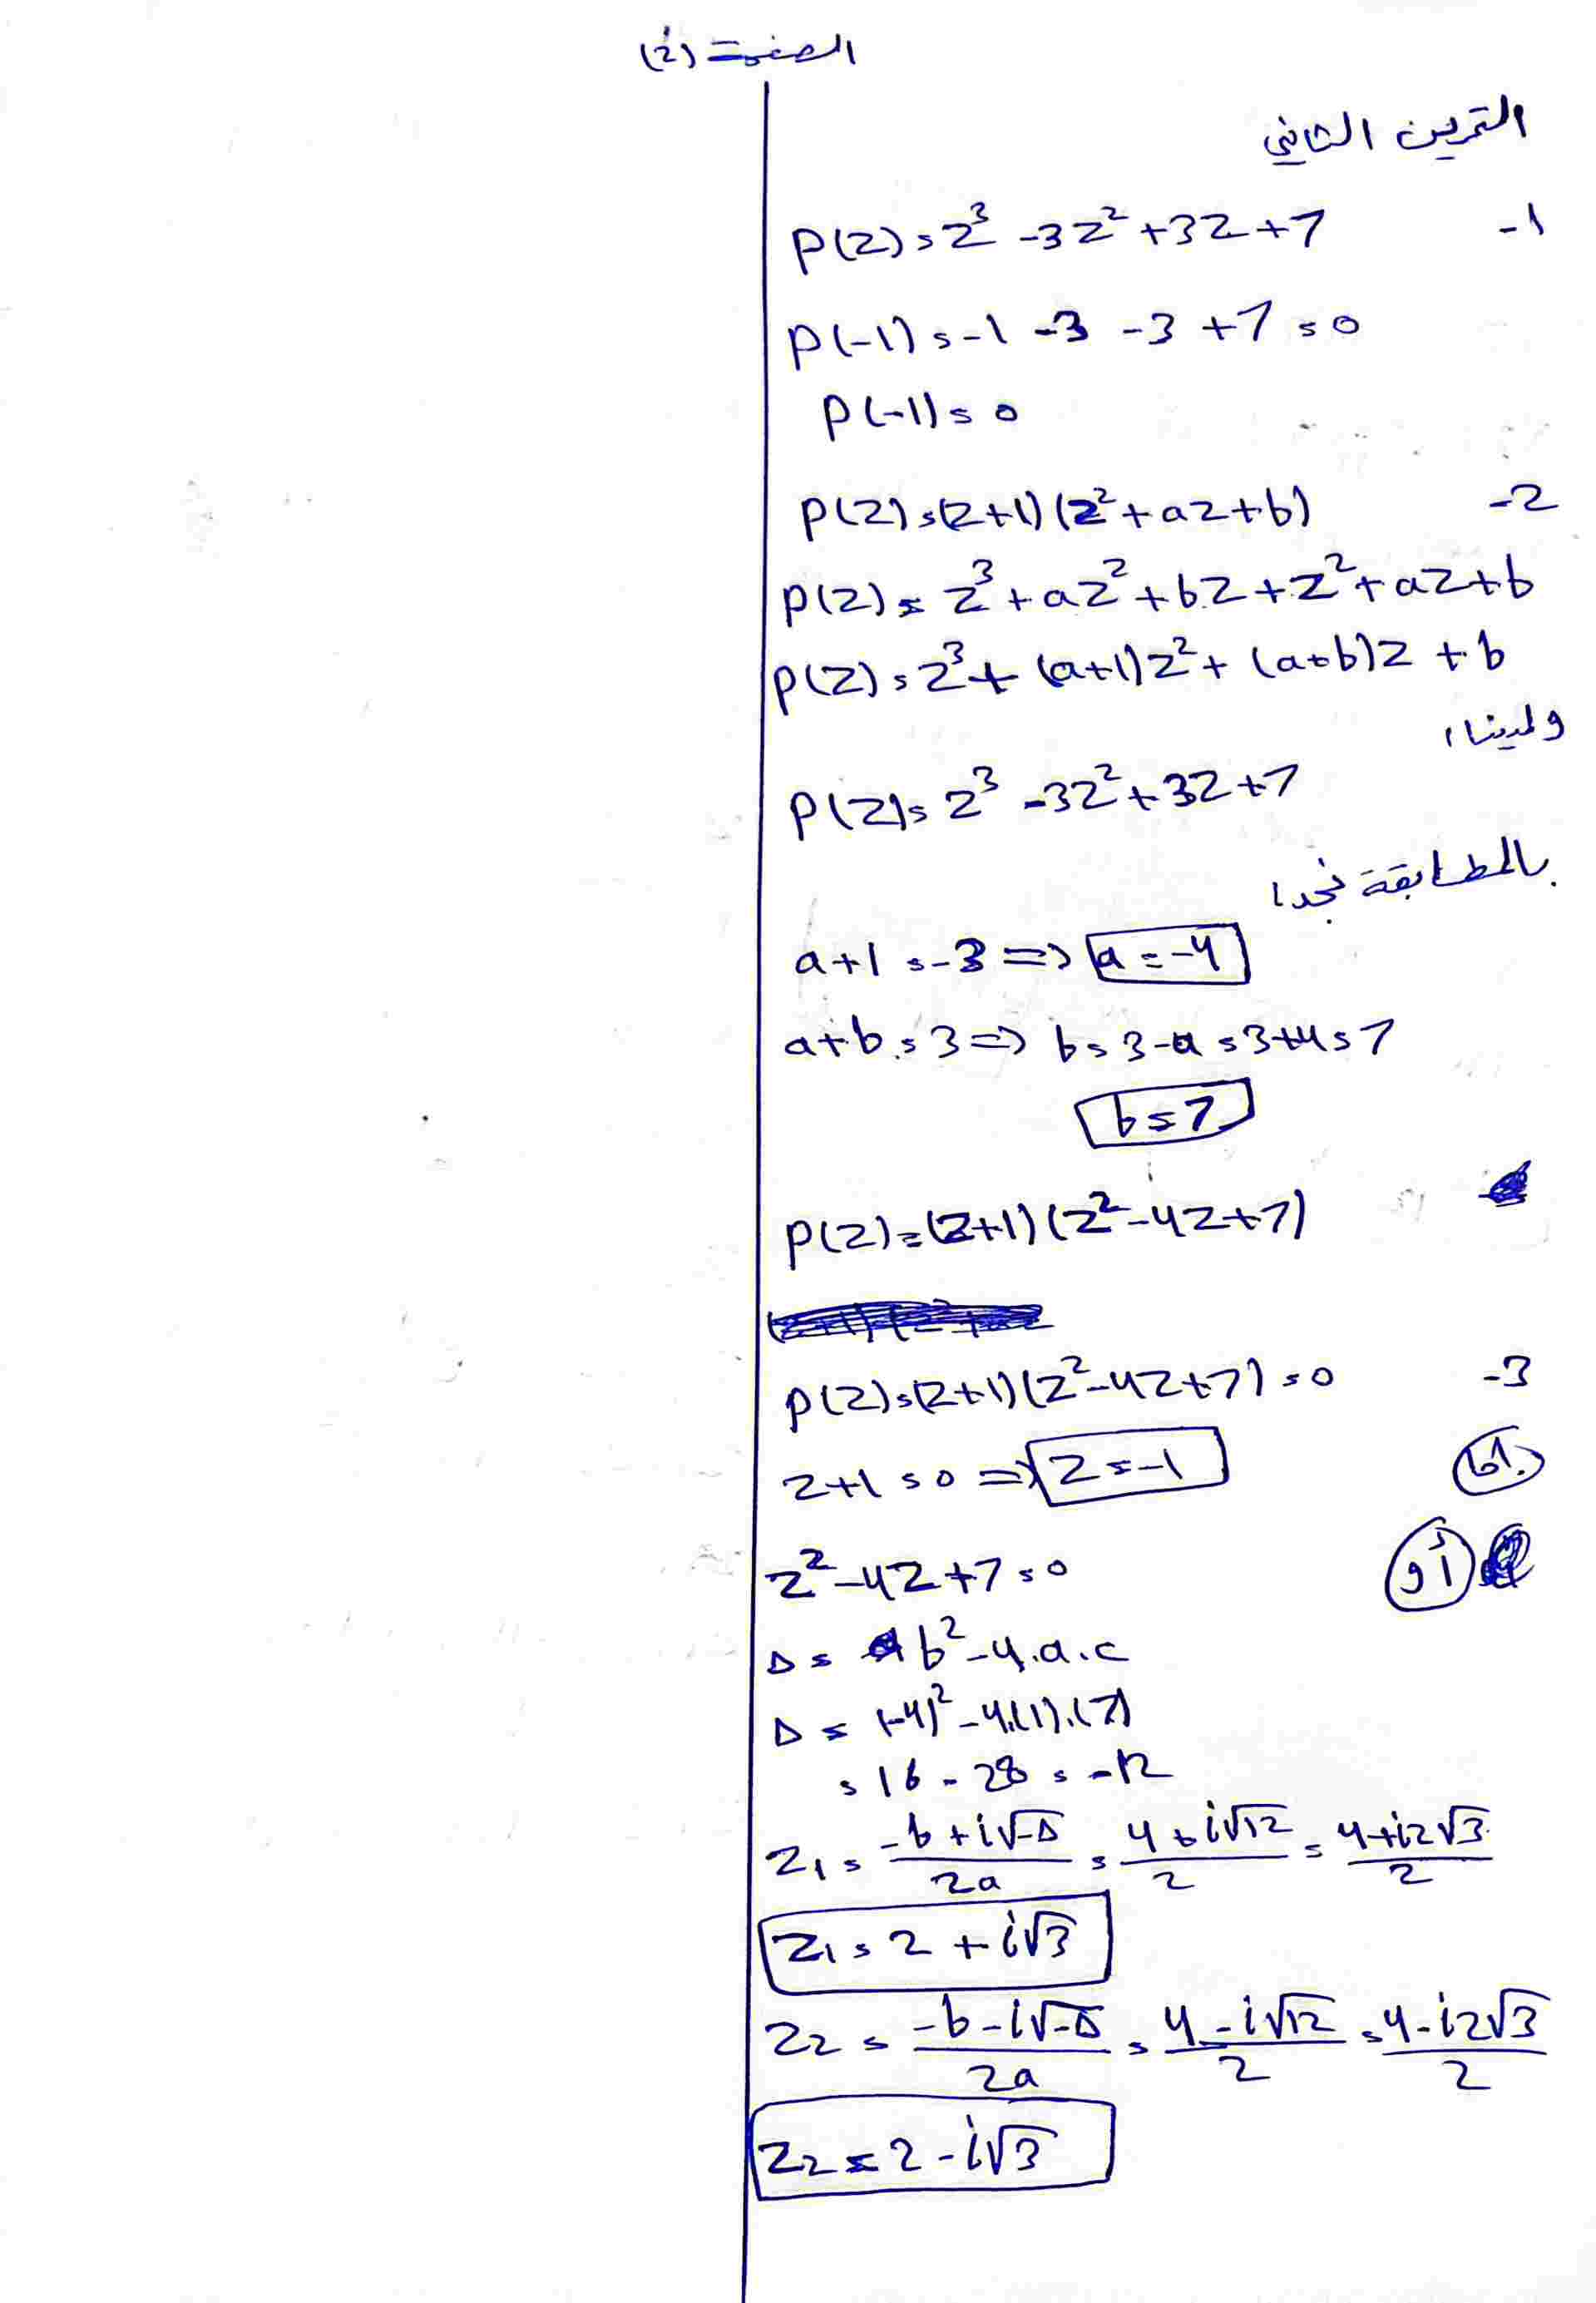 الصفحة (2)
التمرين الثاني
1- P(z) = z³ - 3z² + 3z + 7
P(-1) = -1 - 3 - 3 + 7 = 0
P(-1) = 0
2- P(z) = (z+1)(z² + az + b)
P(z) = z³ + az² + bz + z² + az + b
P(z) = z³ + (a+1)z² + (a+b)z + b
ولدينا:
P(z) = z³ - 3z² + 3z + 7
بالمطابقة نجد:
a+1 = -3 => a = -4
a+b = 3 => b = 3 - a = 3+4 = 7
b = 7
P(z) = (z+1)(z² - 4z + 7)
3- P(z) = (z+1)(z² - 4z + 7) = 0
إما z+1 = 0 => z = -1
أو z² - 4z + 7 = 0
Δ = b² - 4.a.c
Δ = (-4)² - 4.(1).(7)
= 16 - 28 = -12
z₁ = (-b + i√-Δ)/2a = (4 + i√12)/2 = (4 + i2√3)/2
z₁ = 2 + i√3
z₂ = (-b - i√-Δ)/2a = (4 - i√12)/2 = (4 - i2√3)/2
z₂ = 2 - i√3